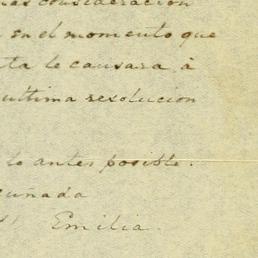 mas consideracion
en el momento que
ta le causara á
ultima resolucion
lo antes posible.
cuñada
Emilia.